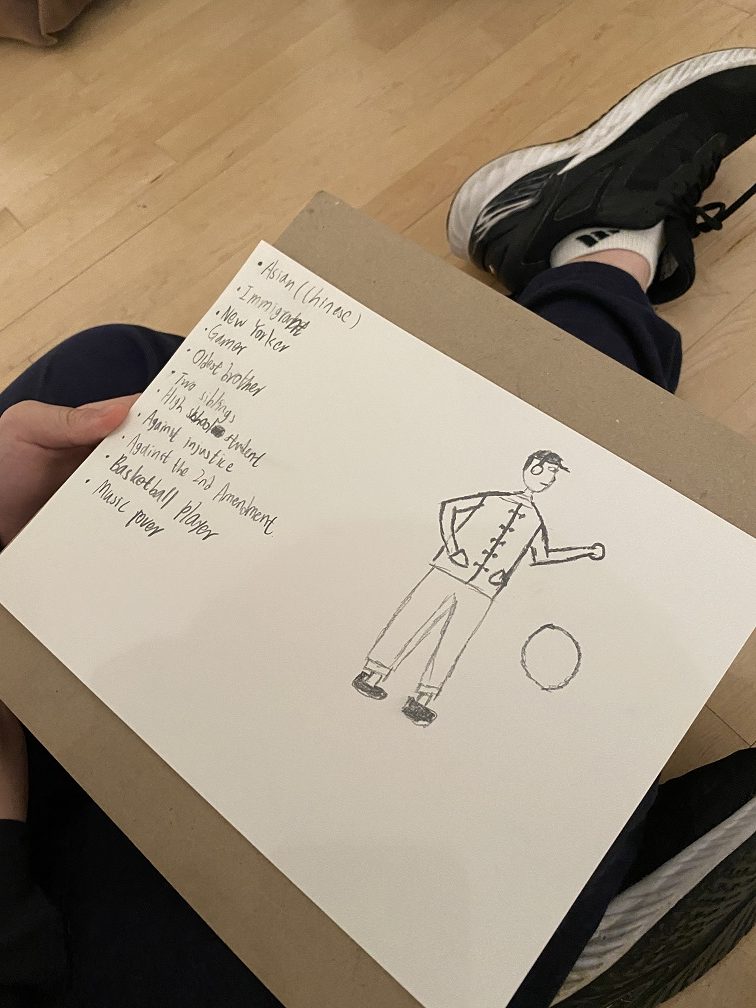 • Asian (Chinese)
• Immigrant
• New Yorker
• Gamer
• Oldest brother
• Two siblings
• High school student
• Against injustice
• Against the 2nd Amendment
• Basketball player
• Music lover